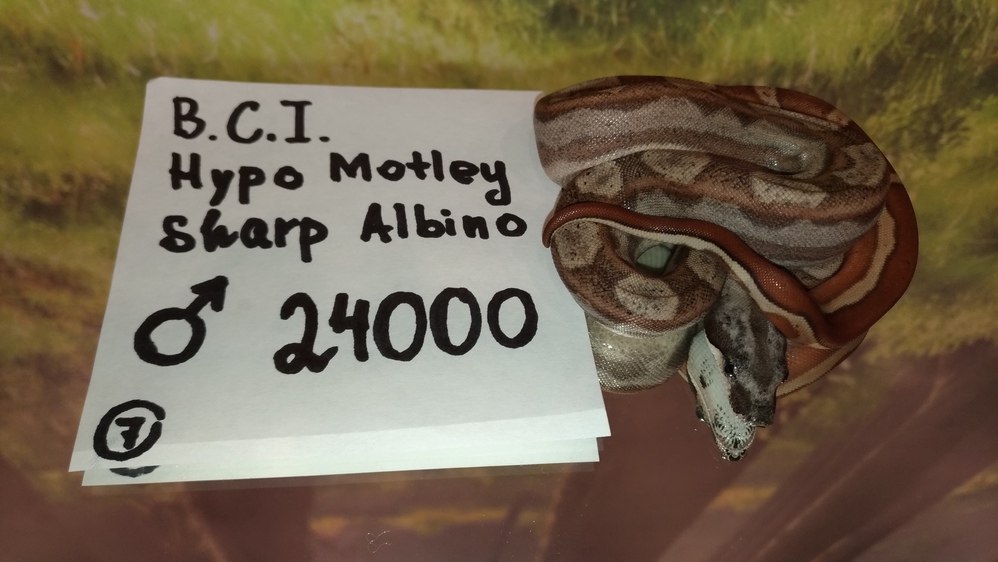 B.C.I.
Hypo Motley
Sharp Albino
♂ 24000
7